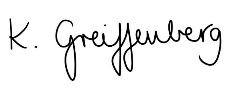 K. Greiffenberg